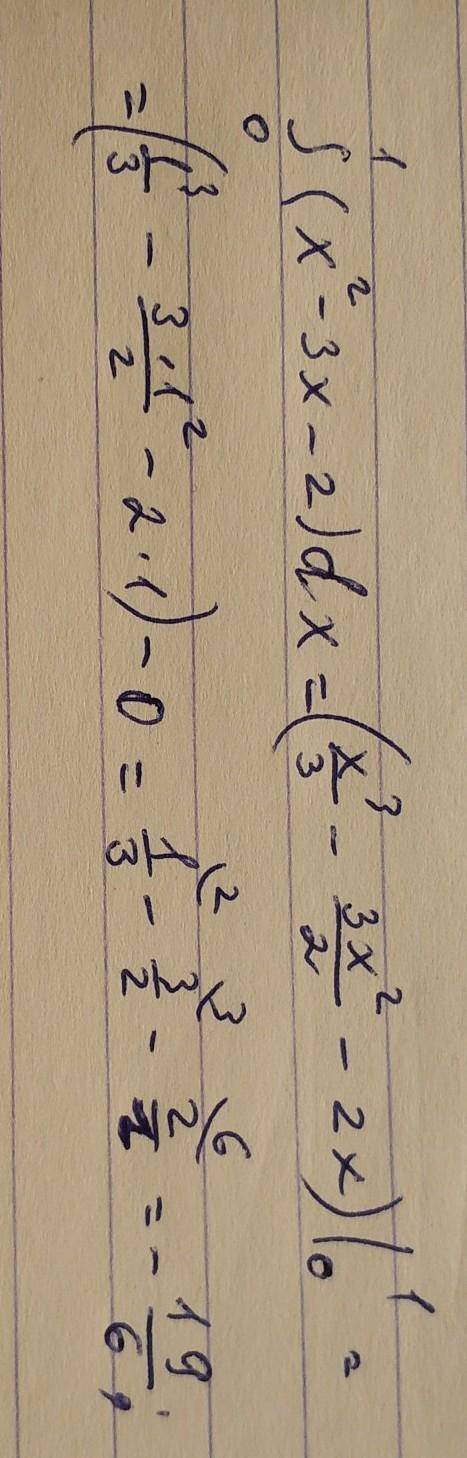 ∫₀¹ (x² - 3x - 2) dx = (x³/3 - 3x²/2 - 2x) |₀¹ =
= (1³/3 - 3·1²/2 - 2·1) - 0 = 1/3 \2 - 3/2 \3 - 2/1 \6 = - 19/6;